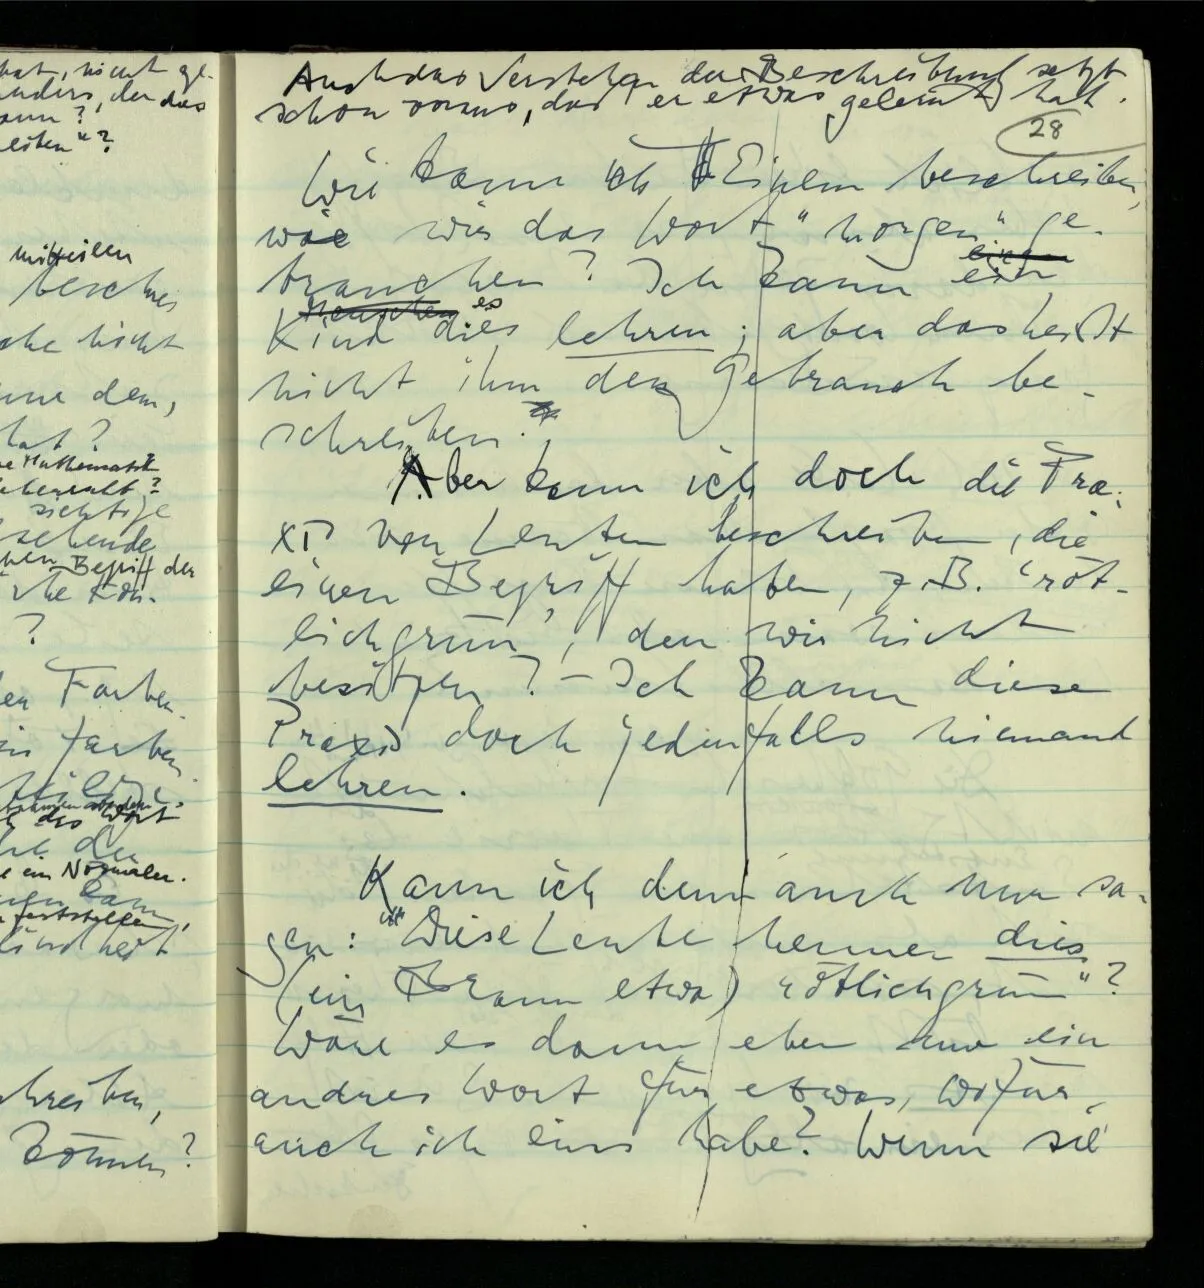 hat, nicht ge-
anders, der das
kann?
"?
mitteilen
beschrei
che nicht
dem,
hat?
Mathematik
?
sichtige
sehende
Begriff der
?
Farben-
farben
das Wort
ein Normaler.
kann,
feststellen,
blindheit
chreiben,
können?
Auch das Verstehen der Beschreibung setzt
schon voraus, daß er etwas gelernt hat.
28
Wie kann ich Einem beschreiben,
wie wir das Wort "morgen" ge-
einen
brauchen? Ich kann ein
Menschen es
Kind dies lehren; aber das heißt
nicht ihm den Gebrauch be-
schreiben.
Aber kann ich doch die Pra-
xis von Leuten beschreiben, die
einen Begriff haben, z.B. 'röt-
lichgrün', den wir nicht
besitzen? – Ich kann diese
Praxis doch jedenfalls niemand
lehren.
Kann ich denn auch nur sa-
gen: "Diese Leute nennen dies
(ein Braun etwa) rötlichgrün"?
Wäre es dann eben nur ein
andres Wort für etwas, wofür
auch ich eins habe? Wenn sie